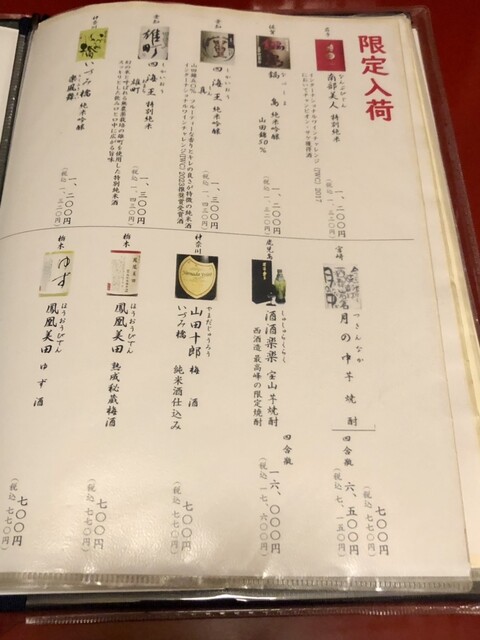 限定入荷
岩手
南部美人 特別純米
なんぶびじん
インターナショナルワインチャレンジ(IWC) 2017
一、二〇〇円
(税込 一、三二〇円)
佐賀
鍋島 純米吟醸
なべしま
山田錦50%
一、二〇〇円
(税込 一、三二〇円)
愛知
四海王 純米吟醸
しかいおう
真
インターナショナルワインチャレンジ(IWC) 2023推薦賞受賞酒
一、三〇〇円
(税込 一、四三〇円)
愛知
四海王 特別純米
しかいおう
雄町
一、三〇〇円
(税込 一、四三〇円)
神奈川
いづみ橋 純米吟醸
楽風舞
一、二〇〇円
(税込 一、三二〇円)
宮崎
月の中 芋焼酎
つきんなか
七〇〇円
(税込 七七〇円)
四合瓶
六、五〇〇円
(税込 七、一五〇円)
鹿児島
酒酒楽楽 宝山芋焼酎
しゅしゅらくらく
西酒造 最高峰の限定焼酎
四合瓶
一六、〇〇〇円
(税込 一七、六〇〇円)
神奈川
山田十郎 梅酒
やまだじゅうろう
いづみ橋 純米酒仕込み
七〇〇円
(税込 七七〇円)
栃木
鳳凰美田 熟成秘蔵梅酒
ほうおうびでん
七〇〇円
(税込 七七〇円)
栃木
ゆず
鳳凰美田 ゆず酒
ほうおうびでん
七〇〇円
(税込 七七〇円)